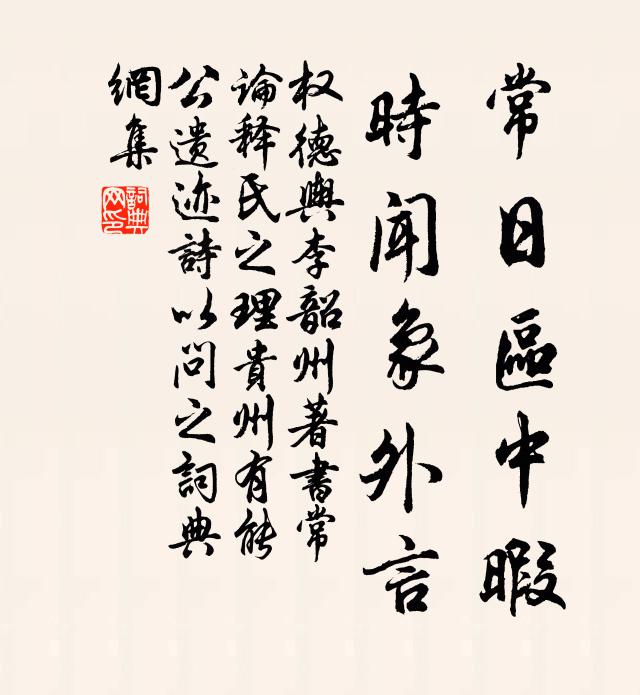 常日區中暇
時聞象外言
权德輿李韶州著書常
論释氏之理貴州有能
公遗迹詩以问之詞典
網集
詞典网印